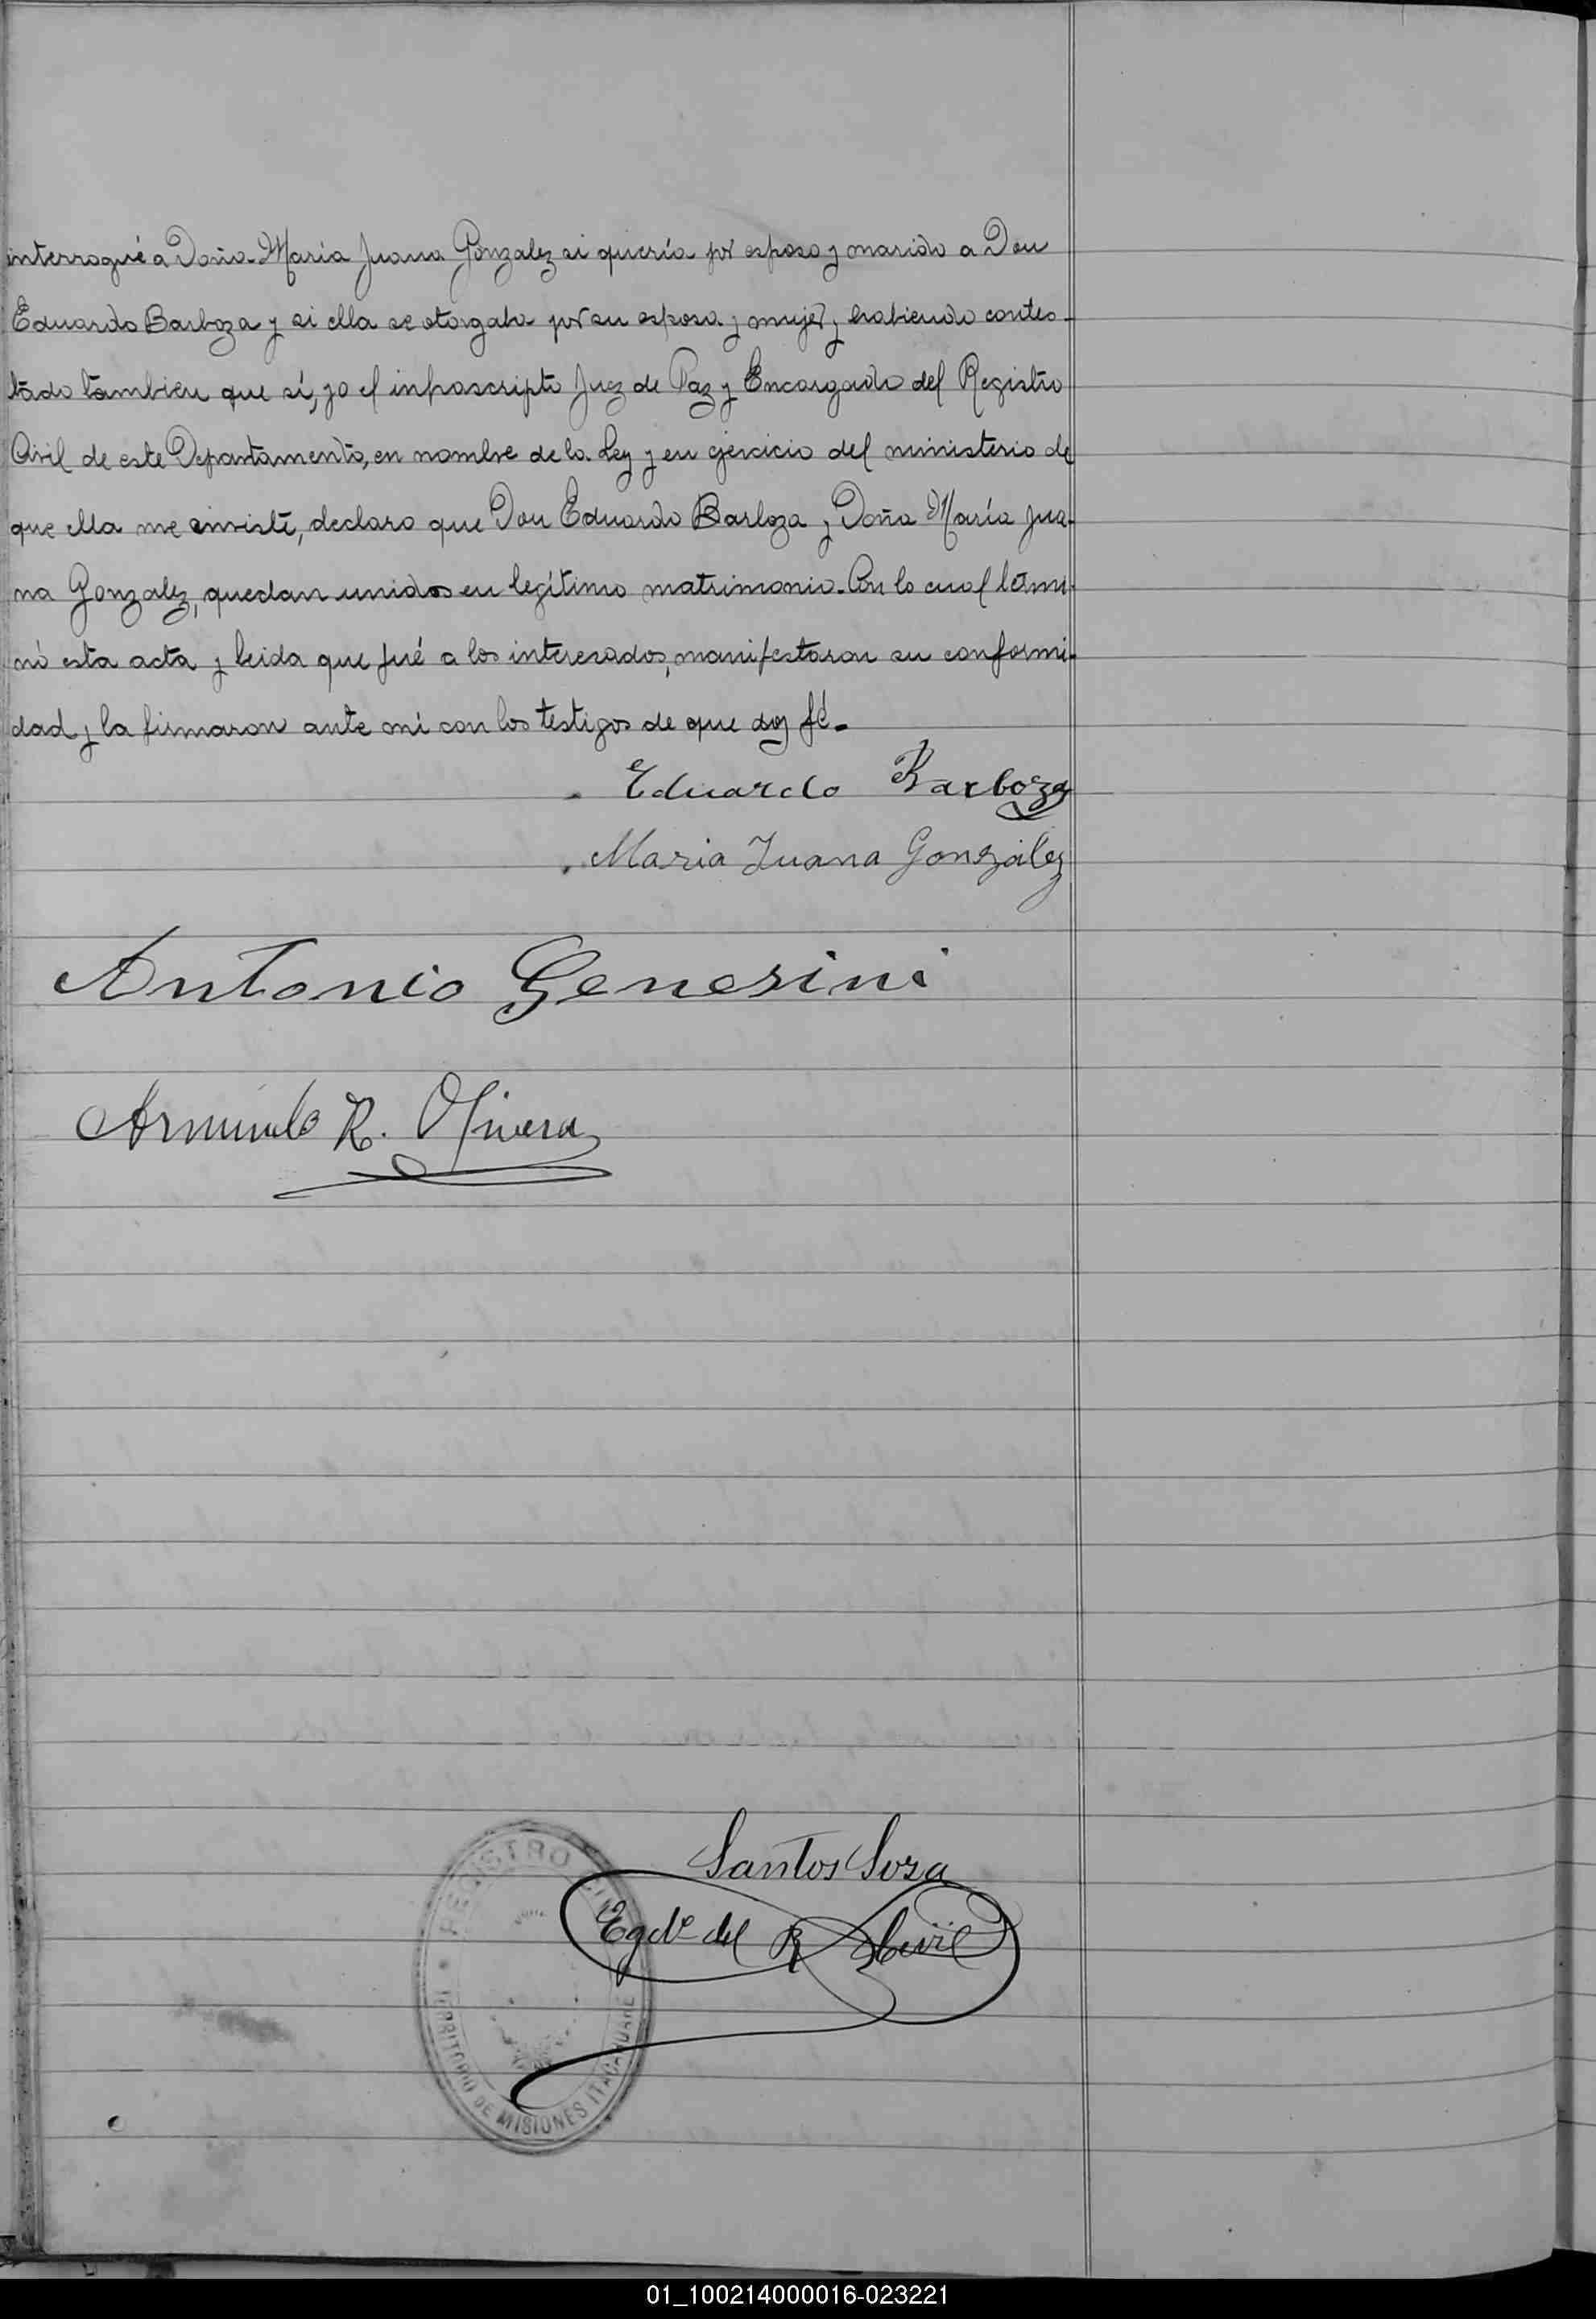 interrogué a Doña María Juana Gonzalez si quería por esposo y marido a Don
Eduardo Barboza y si ella se otorgaba por su esposa y mujer, y habiendo contes-
tado tambien que sí, yo el infrascripto Juez de Paz y Encargado del Registro
Civil de este Departamento, en nombre de la Ley y en ejercicio del ministerio de
que ella me inviste, declaro que Don Eduardo Barboza y Doña María Jua-
na Gonzalez, quedan unidos en legítimo matrimonio. Con lo cual termi-
nó esta acta y leida que fué a los interesados, manifestaron su conformi-
dad y la firmaron ante mí con los testigos de que doy fé.
Eduardo Barboza
Maria Juana González
Antonio Genesini
Armindo R. Olivera
Santos Sosa
Egdo del R Civil
REGISTRO CIVIL
TERRITORIO DE MISIONES ITACARUARE
01_100214000016-023221